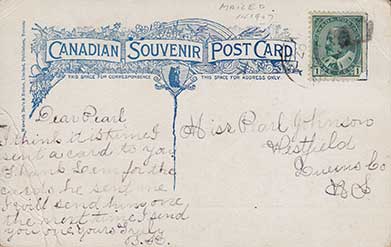 MAILED
IN 1907
CANADIAN SOUVENIR POST CARD
THIS SPACE FOR CORRESPONDENCE
THIS SPACE FOR ADDRESS ONLY
Dear Pearl
I think it is time I
sent a card to you
Thank Leem for the
cards he sent me
I will send him one
the next time I send
you one yours Truly
Miss Pearl Johnson
Westfield
Queens Co
N S